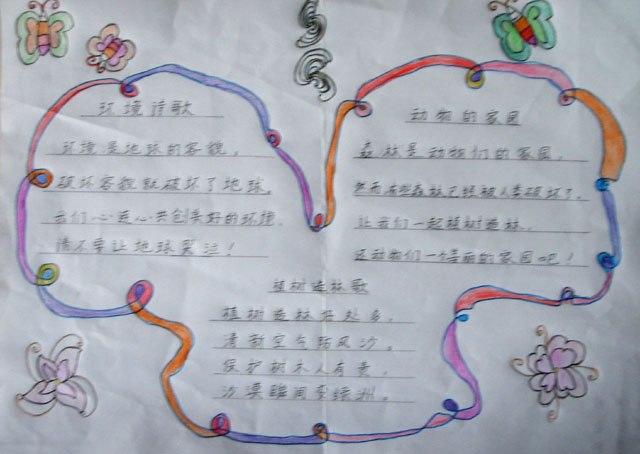 环境诗歌
环境是地球的容貌，
破坏容貌就破坏了地球。
我们心连心共创美好的环境，
请不要让地球哭泣！
动物的家园
森林是动物们的家园，
然而有些森林已经被人类破坏了。
让我们一起植树造林，
还动物们一个美丽的家园吧！
植树造林歌
植树造林好处多，
清新空气防风沙。
保护树木人有责，
沙漠瞬间变绿洲。